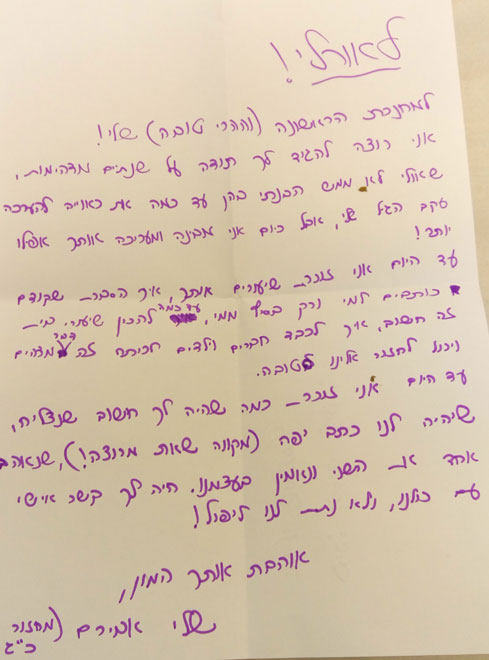 לאורלי!
למחנכת הראשונה (וההכי טובה) שלי!
אני רוצה להגיד לך תודה על שנתיים מדהימות,
שאולי לא ממש הבנתי בהן עד כמה את ראוייה להערכה
עקב הגיל שלי, אבל כיום אני מבינה ומעריכה אותך אפילו
יותר!
עד היום אני זוכרת שיעורים אותך, איך הסברת שקודם
כותבים למי ורק בסוף ממי, עד כמה להכין שיעורי בית
זה חשוב, איך לכבד חברים וילדים לכיתה זה דבר מדהים
ויכול לחזור אלינו לטובה.
עד היום אני זוכרת כמה שהיה לך חשוב שנצליח,
שיהיה לנו כתב יפה (מקווה שאת מרוצה!), שנאהב
אחד את השני ונאמין בעצמנו. היה לך קשר אישי
עם כולנו, ולא נתת לנו ליפול!
אוהבת אותך המון,
שלי אמירים (מחזור
כ"ג